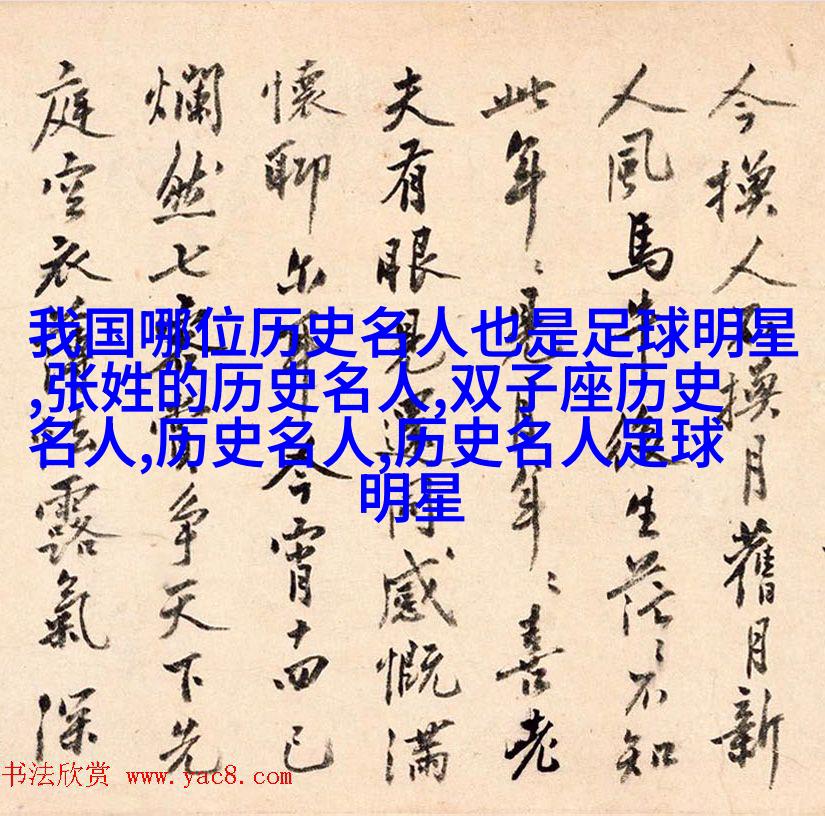 今換人不換月舊月新
人風馬牛後生茫〻不知
此年〻見月年〻喜老
夫有眼見還同感慨滿
懷聊尔今宵十四已
爛然七爭天下先
庭空衣露氣深
我国哪位历史名人也是足球明星
,张姓的历史名人,双子座历史
名人,历史名人,历史名人足球
明星
书法欣赏 www.yac8.com